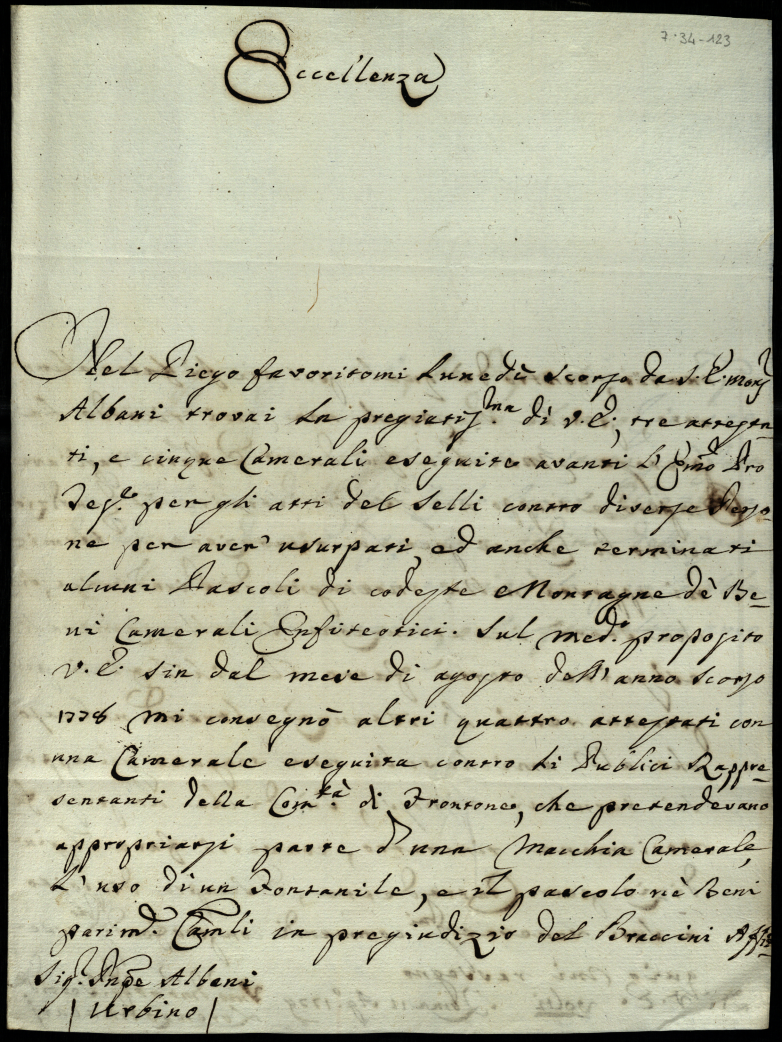 7.34-123
Eccellenza
Nel Piego favoritomi Lunedì scorso da S. E. Monsr
Albani trovai La pregiatissma di V. E., tre attesta-
ti, e cinque Camerali eseguite avanti L'Emo Pro
per gli atti del Selli contro diverse Perso-
ne per aver' usurpati, ed anche terminati
alcuni Pascoli di codeste Montagne de' Be-
ni Camerali Enfiteotici. Sul medo proposito
V. E. sin dal mese di agosto dell'anno scorso
1778 mi consegnò altri quattro attestati con
una Camerale eseguita contro li Publici Rappre-
sentanti della Comtà di Frontone, che pretendevano
appropriarsi parte d'una Macchia Camerale,
L'uso di un Fontanile, e il pascolo ne' Beni
parimte Camli in pregiudizio del Braccini
Sigr Pnpe Albani
/ Urbino /